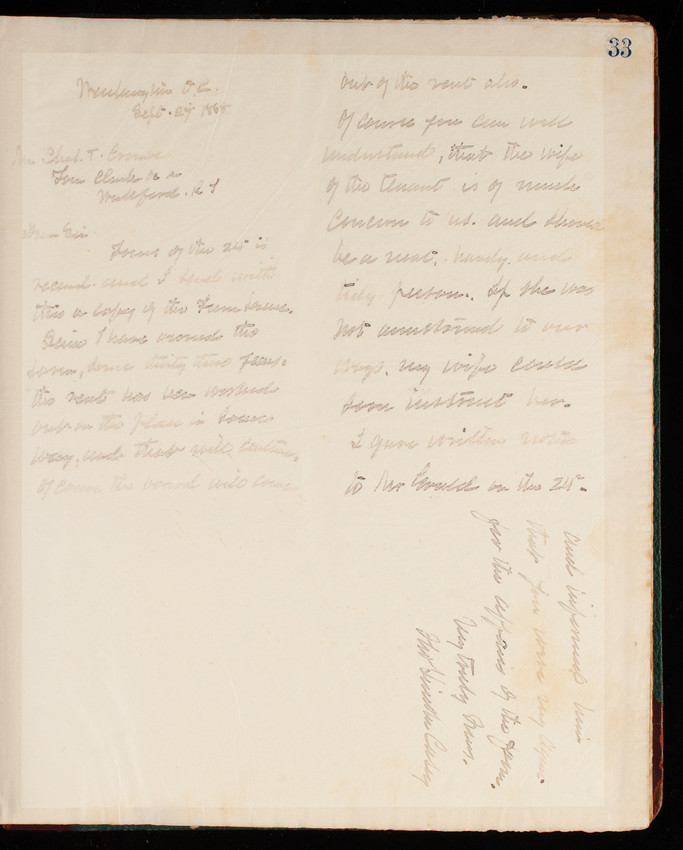 33
Washington D.C.
Sept. 27 1888
Mr Chas. T.
Wickford. R I
Dear Sir
Yours of the 24" is
recvd. and I send with
this a copy of the Farm lease.
Since I have owned the
farm, some thirty two years.
the rent has been worked
out on the place in some
way, and that will continue.
Of course the board will come
out of the rent also.
Of course you can well
understand, that the wife
of the tenant is of much
concern to us. and should
be a neat, handy and
tidy person. If she was
not accustomed to our
ways, my wife could
soon instruct her.
I gave written notice
to Mr Gould on the 24".
and informed him
that you were my agt.
for the affairs of the farm.
Very Truly Yours.
Thos Lincoln Casey